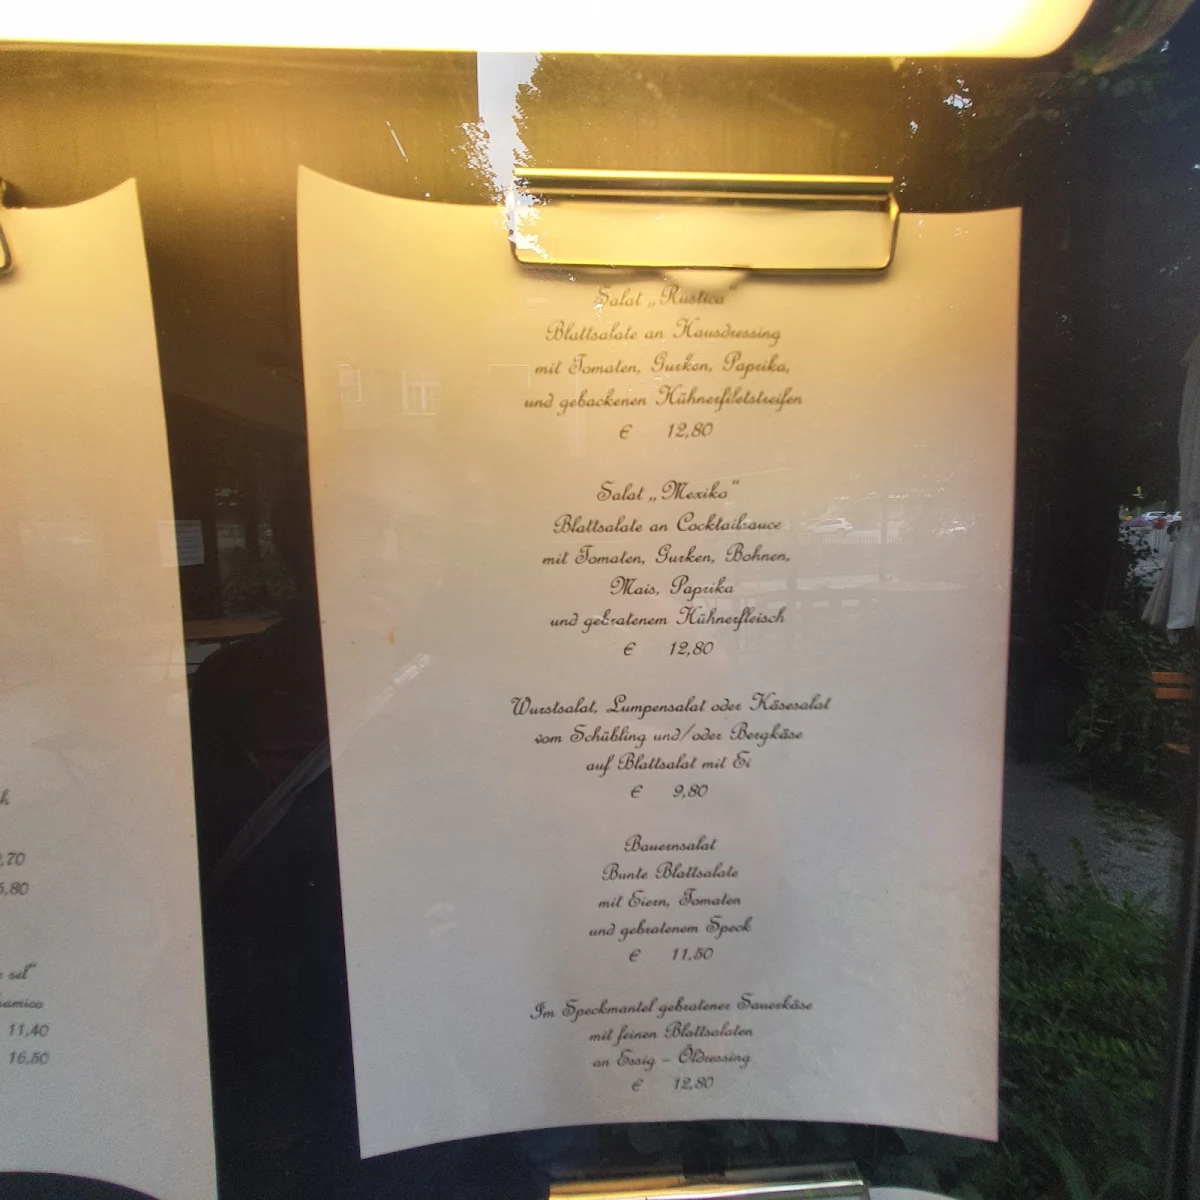 Salat „Rustica“
Blattsalate an Hausdressing
mit Tomaten, Gurken, Paprika,
und gebackenen Hühnerfiletstreifen
€ 12,80
Salat „Mexiko“
Blattsalate an Cocktailsauce
mit Tomaten, Gurken, Bohnen,
Mais, Paprika
und gebratenem Hühnerfleisch
€ 12,80
Wurstsalat, Lumpensalat oder Käsesalat
vom Schübling und/oder Bergkäse
auf Blattsalat mit Ei
€ 9,80
Bauernsalat
Bunte Blattsalate
mit Eiern, Tomaten
und gebratenem Speck
€ 11,50
Im Speckmantel gebratener Sauerkäse
mit feinen Blattsalaten
an Essig – Öldressing
€ 12,80
,70
,80
sel"
11,40
16,50